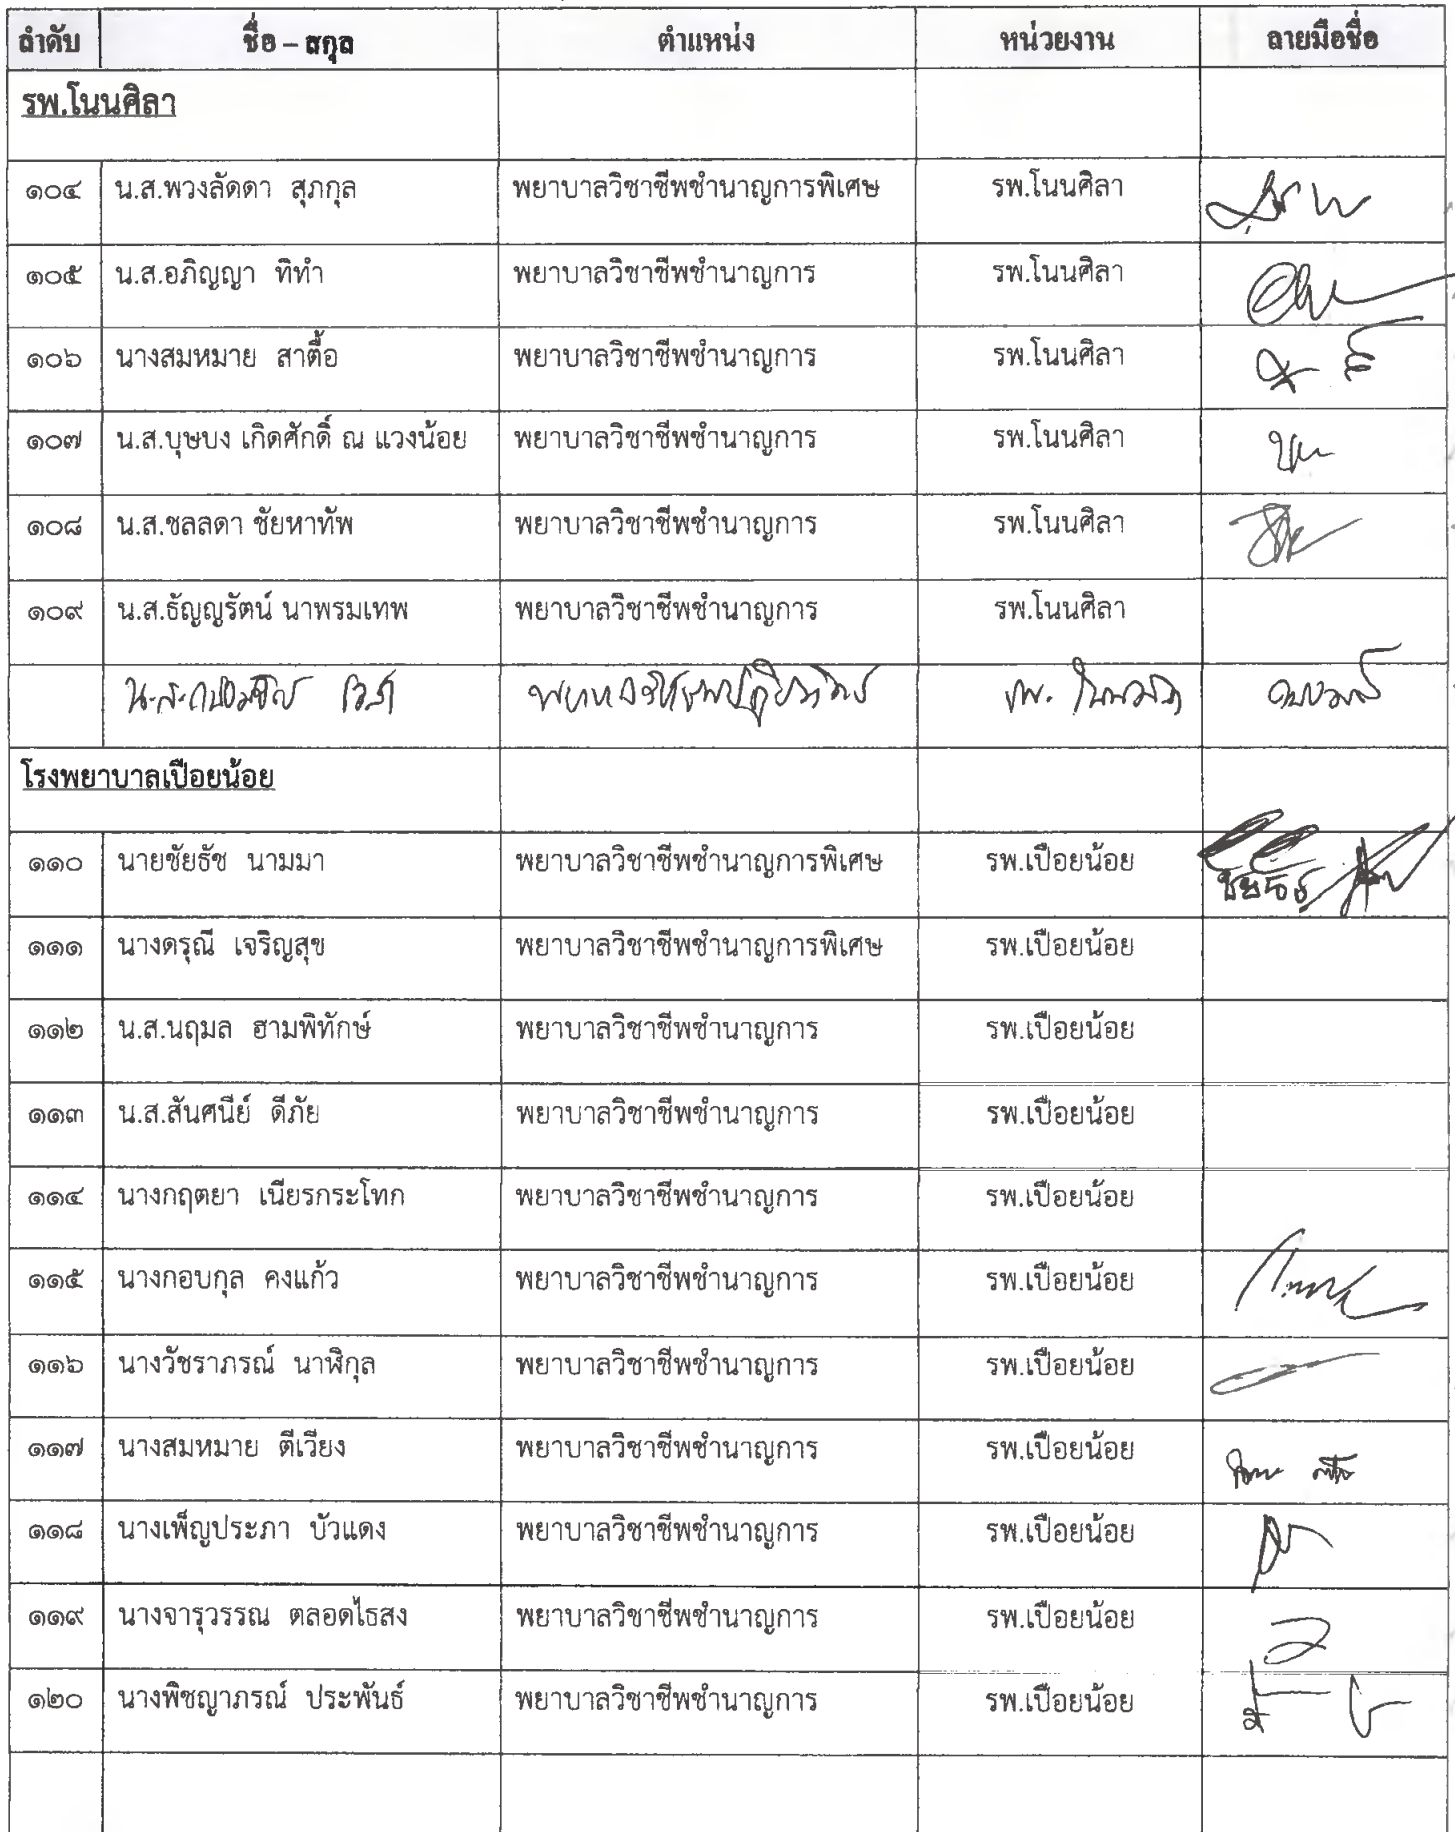 ลำดับ ชื่อ – สกุล ตำแหน่ง หน่วยงาน ลายมือชื่อ
รพ.โนนศิลา
๑๐๔ น.ส.พวงลัดดา สุภกุล พยาบาลวิชาชีพชำนาญการพิเศษ รพ.โนนศิลา
๑๐๕ น.ส.อภิญญา ทิทำ พยาบาลวิชาชีพชำนาญการ รพ.โนนศิลา
๑๐๖ นางสมหมาย สาตื้อ พยาบาลวิชาชีพชำนาญการ รพ.โนนศิลา
๑๐๗ น.ส.บุษบง เกิดศักดิ์ ณ แวงน้อย พยาบาลวิชาชีพชำนาญการ รพ.โนนศิลา
๑๐๘ น.ส.ชลลดา ชัยหาทัพ พยาบาลวิชาชีพชำนาญการ รพ.โนนศิลา
๑๐๙ น.ส.ธัญญรัตน์ นาพรมเทพ พยาบาลวิชาชีพชำนาญการ รพ.โนนศิลา
น.ส. รพ.
โรงพยาบาลเปือยน้อย
๑๑๐ นายชัยธัช นามมา พยาบาลวิชาชีพชำนาญการพิเศษ รพ.เปือยน้อย
๑๑๑ นางดรุณี เจริญสุข พยาบาลวิชาชีพชำนาญการพิเศษ รพ.เปือยน้อย
๑๑๒ น.ส.นฤมล ฮามพิทักษ์ พยาบาลวิชาชีพชำนาญการ รพ.เปือยน้อย
๑๑๓ น.ส.สันศนีย์ ดีภัย พยาบาลวิชาชีพชำนาญการ รพ.เปือยน้อย
๑๑๔ นางกฤตยา เนียรกระโทก พยาบาลวิชาชีพชำนาญการ รพ.เปือยน้อย
๑๑๕ นางกอบกุล คงแก้ว พยาบาลวิชาชีพชำนาญการ รพ.เปือยน้อย
๑๑๖ นางวัชราภรณ์ นาฬิกุล พยาบาลวิชาชีพชำนาญการ รพ.เปือยน้อย
๑๑๗ นางสมหมาย ตีเวียง พยาบาลวิชาชีพชำนาญการ รพ.เปือยน้อย
๑๑๘ นางเพ็ญประภา บัวแดง พยาบาลวิชาชีพชำนาญการ รพ.เปือยน้อย
๑๑๙ นางจารุวรรณ ตลอดไธสง พยาบาลวิชาชีพชำนาญการ รพ.เปือยน้อย
๑๒๐ นางพิชญาภรณ์ ประพันธ์ พยาบาลวิชาชีพชำนาญการ รพ.เปือยน้อย